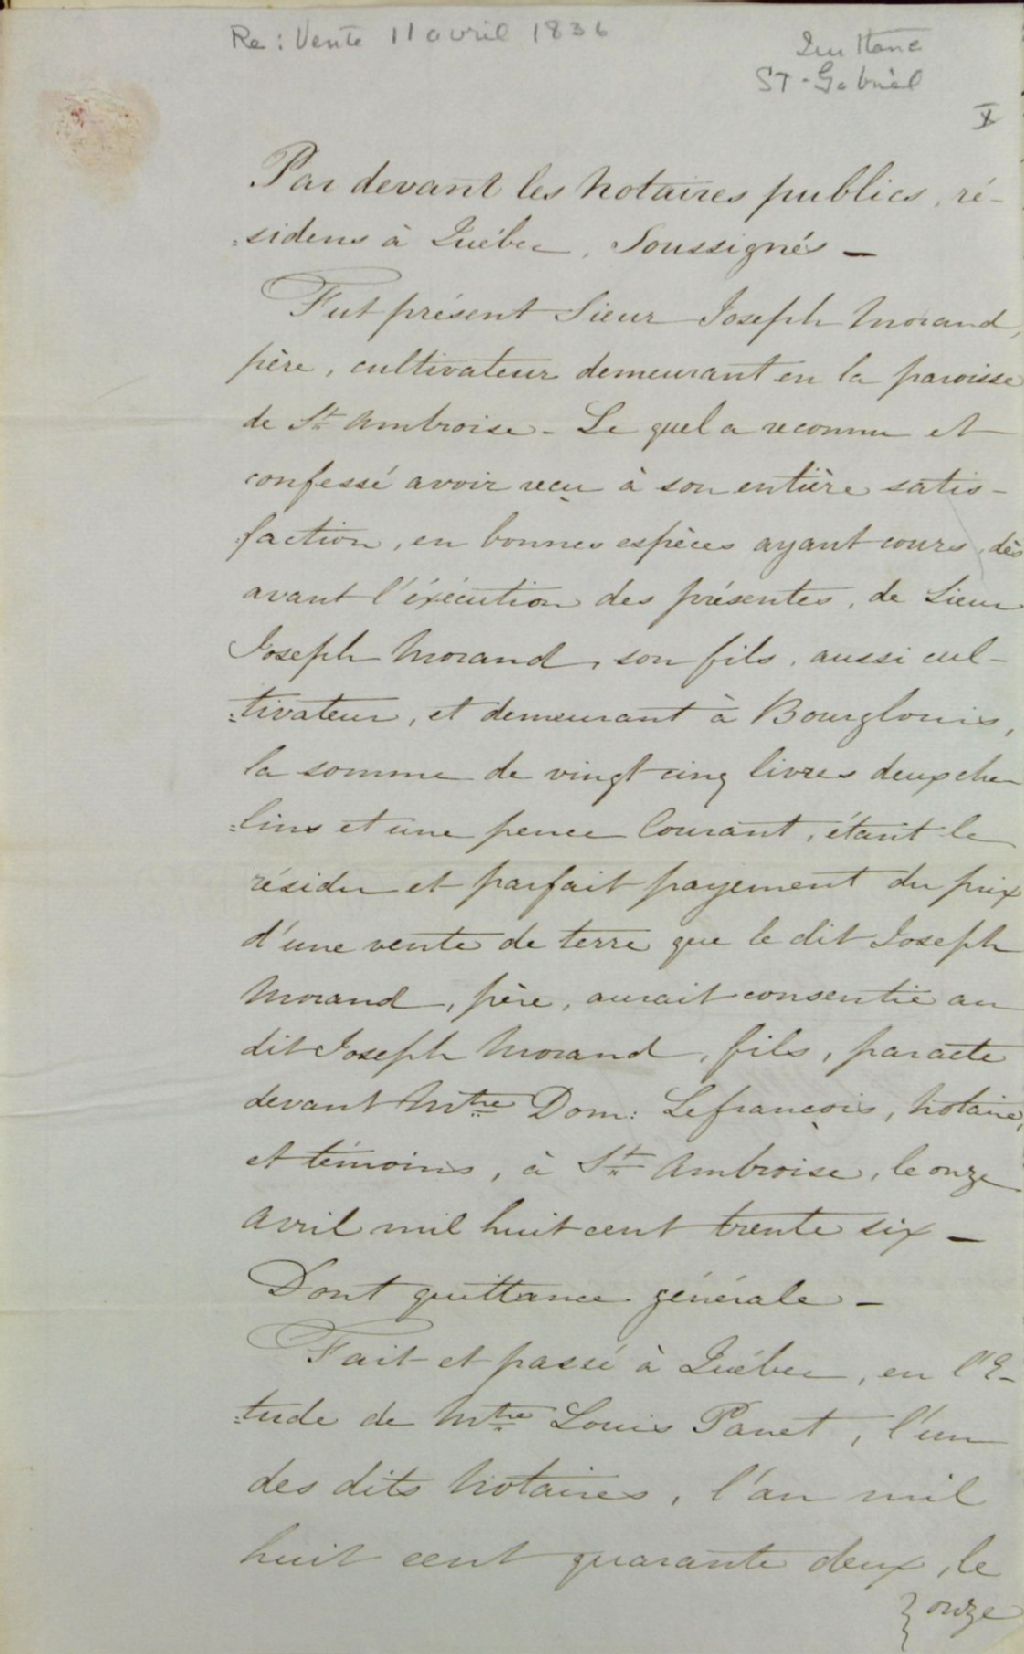 Re: Vente 11 avril 1836
Quittance
St-Gabriel
Par devant les Notaires publics, ré-
=sidens à Québec, Soussignés —
Fut présent Sieur Joseph Morand,
père, cultivateur demeurant en la paroisse
de St. Ambroise - Le quel a reconnu et
confessé avoir reçu à son entière satis-
=faction, en bonnes espèces ayant cours, dès
avant l'éxécution des présentes, de Sieur
Joseph Morand, son fils, aussi cul-
=tivateur, et demeurant à Bourglouis,
la somme de vingt cinq livres deux che
=lins et une pence Courant, étant le
résidu et parfait payement du prix
d'une vente de terre que le dit Joseph
Morand, père, aurait consentie au
dit Joseph Morand, fils, par acte
devant Mtre Dom: Lefrançois, Notaire,
et témoins, à St. Ambroise, le onze
Avril mil huit cent trente six —
Dont quittance générale —
Fait et passé à Québec, en l'E-
=tude de Mtre Louis Panet, l'un
des dits Notaires, l'an mil
huit cent quarante deux, le
onze